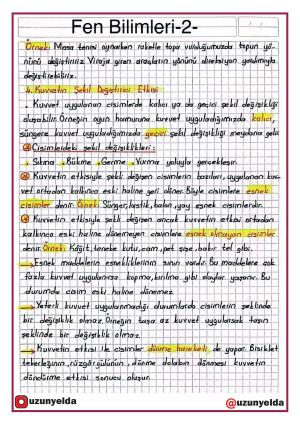 Fen Bilimleri-2-
Örnek: Masa tenisi oynarken raketle topa vurduğumuzda topun yö-
nünü değiştiririz. Viraja giren araçların yönünü direksiyon yardımıyla
değiştirebiliriz.
4. Kuvvetin Şekil Değiştirici Etkisi
• Kuvvet uygulanan cisimlerde kalıcı ya da geçici şekil değişikliği
oluşabilir. Örneğin oyun hamuruna kuvvet uyguladığımızda kalıcı,
süngere kuvvet uyguladığımızda geçici şekil değişikliği meydana gelir.
Cisimlerdeki şekil değişiklikleri:
• Sıkma • Bükme • Germe • Vurma yoluyla gerçekleşir.
Kuvvetin etkisiyle şekli değişen cisimlerin bazıları, uygulanan kuv-
vet ortadan kalkınca eski haline geri döner. Böyle cisimlere esnek
cisimler denir. Örnek: Sünger, lastik, balon, yay esnek cisimlerdir.
Kuvvetin etkisiyle şekli değişen ancak kuvvetin etkisi ortadan
kalkınca eski haline dönemeyen cisimlere esnek olmayan cisimler
denir. Örnek: Kağıt, teneke kutu, cam, pet şişe, bakır tel gibi.
→ Esnek maddelerin esnekliklerinin sınırı vardır. Bu maddelere çok
fazla kuvvet uygulanırsa kopma, kırılma gibi olaylar yaşanır. Bu
durumda cisim eski haline dönemez
→ Yeterli kuvvet uygulanmadığı durumlarda cisimlerin şeklinde
bir değişiklik olmaz. Örneğin taşa az kuvvet uygularsak taşın
şeklinde bir değişiklik olmaz.
→ Kuvvetin etkisi ile cisimler dönme hareketi de yapar. Bisiklet
tekerleğinin, rüzgargülünün, dönme dolabın dönmesi kuvvetin
döndürme etkisi sonucu oluşur.
uzunyelda
@uzunyelda